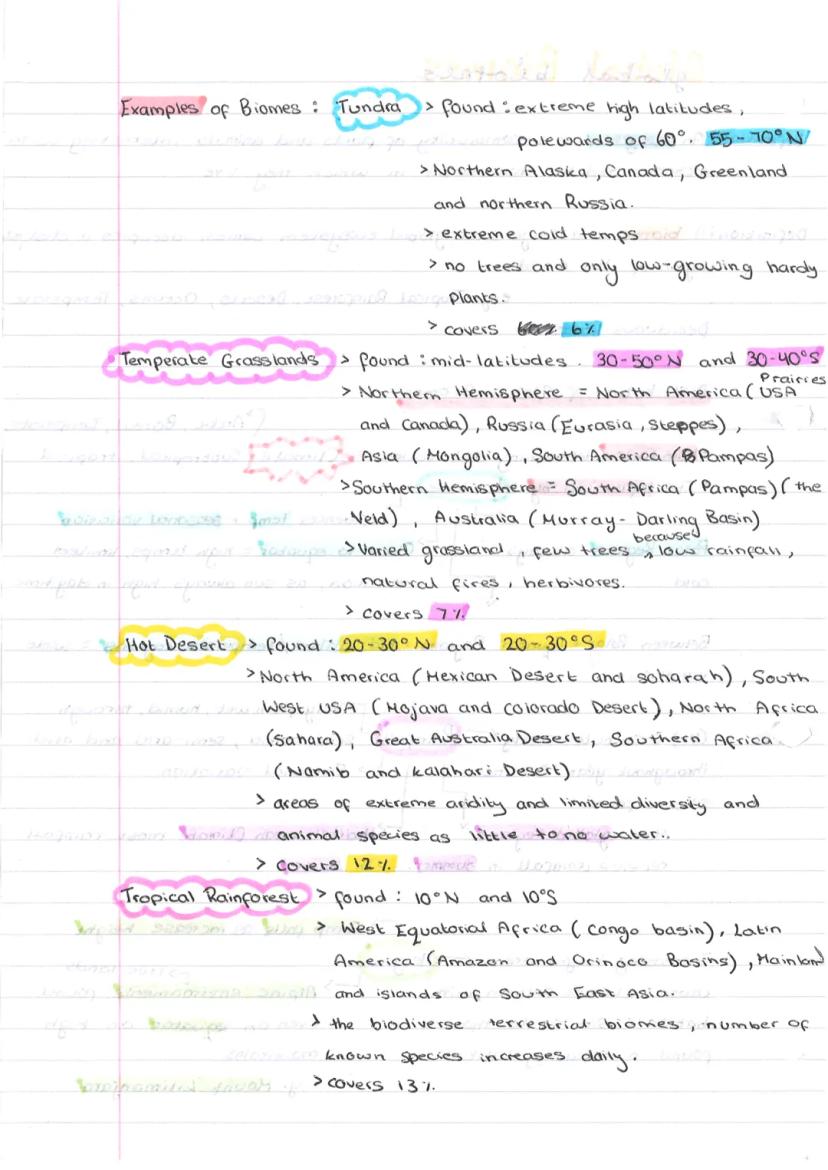 Examples of Biomes : Tundra > found : extreme high latitudes,
polewards of 60°. 55-70°N
> Northern Alaska, Canada, Greenland
and northern Russia.
> extreme cold temps
> no trees and only low-growing hardy
plants.
> covers 6%
Temperate Grasslands > found : mid-latitudes. 30-50°N and 30-40°S
> Northern Hemisphere = North America (USA Prairies
and Canada), Russia (Eurasia, steppes),
Asia (Mongolia), South America (Pampas)
> Southern Hemisphere = South Africa (Pampas) (the
Veld), Australia (Murray-Darling Basin)
> Varied grassland, few trees because low rainfall,
natural fires, herbivores.
> covers 7%
Hot Desert > found : 20-30°N and 20-30°S
> North America (Mexican Desert and soharah), South
West USA (Mojava and Colorado Desert), North Africa
(Sahara), Great Australia Desert, Southern Africa
(Namib and Kalahari Desert)
> areas of extreme aridity and limited diversity and
animal species as little to no water..
> covers 12%
Tropical Rainforest > found : 10°N and 10°S
> West Equatorial Africa (Congo basin), Latin
America (Amazon and Orinoco Basins), Mainland
and islands of South East Asia.
> the biodiverse terrestrial biomes, number of
known species increases daily.
> covers 13%